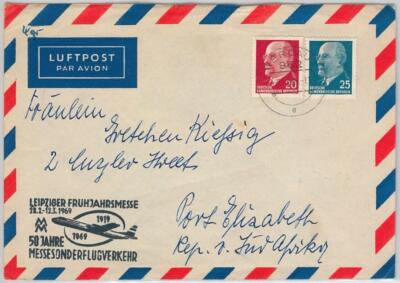 LUFTPOST
PAR AVION
20
DEUTSCHE
DEMOKRATISCHE REPUBLIK
25
DEUTSCHE
DEMOKRATISCHE REPUBLIK
Fräulein
Gretchen Kiessig
2
Port Elizabeth
Rep. v. Süd Afrika
LEIPZIGER FRÜHJAHRSMESSE
28.2.-12.3.1969
1919
1969
MM
50 JAHRE
MESSESONDERFLUGVERKEHR
e